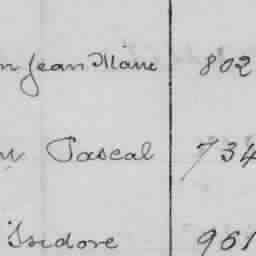 Jean Marie 802
Pascal 734
Isidore 961